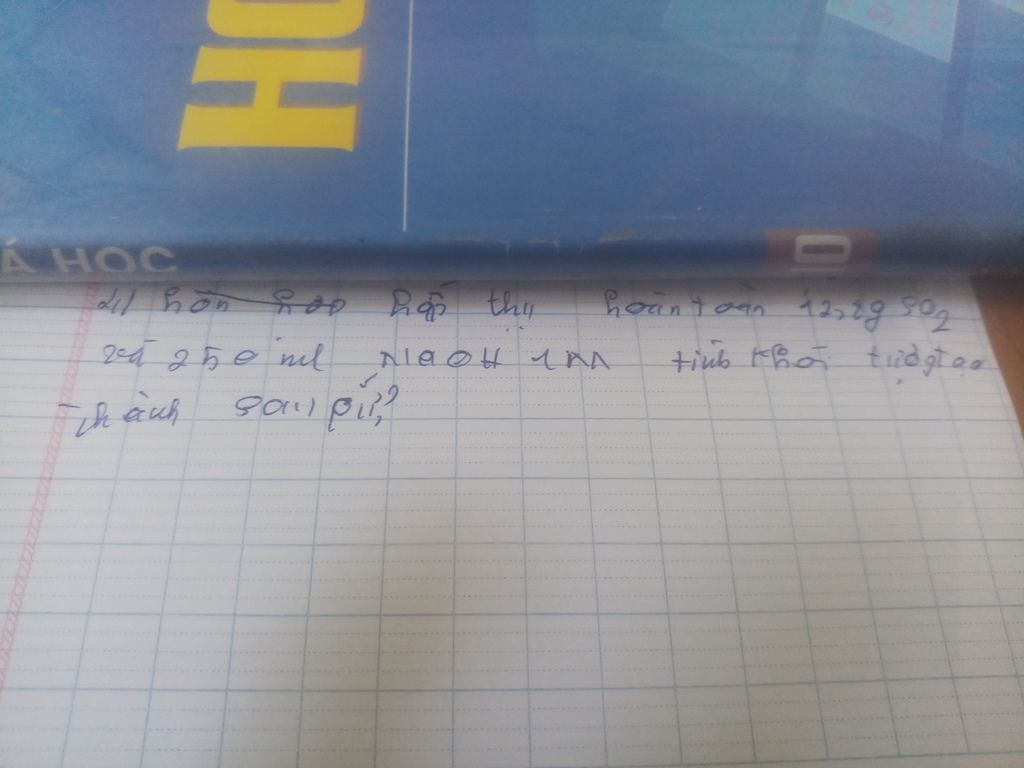 HO
Á HỌC
10
2) hỗn hợp hấp thụ hoàn toàn 12,8g SO2
và 250 ml NaOH 1M tính khối lượng tạo
thành sau pứ?